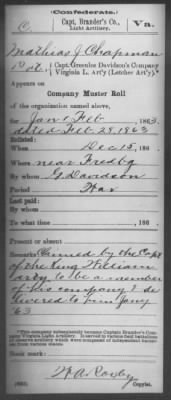 (Confederate.)
C. Capt. Brander's Co., Va.
Light Artillery.
Mathias J. Chapman
Pvt., Capt. Greenlee Davidson's Company
Virginia L. Art'y (Letcher Art'y).*
Appears on
Company Muster Roll
of the organization named above,
for Jan & Feb, 1863.
dated Feb 28, 1863
Enlisted:
When Dec 15, 186 .
Where near Fredbg
By whom G. Davidson
Period War
Last paid:
By whom
To what time , 186 .
Present or absent
Remarks: Claimed by the Capt
of the King William
Arty to be a member
of his company & de
livered to him Jany
'63
*This company subsequently became Captain Brander's Com-
pany Virginia Light Artillery.
Book mark:
(642) Copyist.